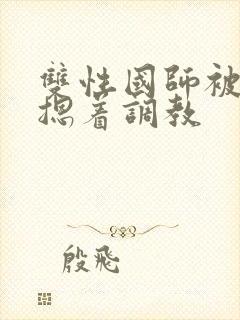 雙性國師被
摁著調教
殷飛